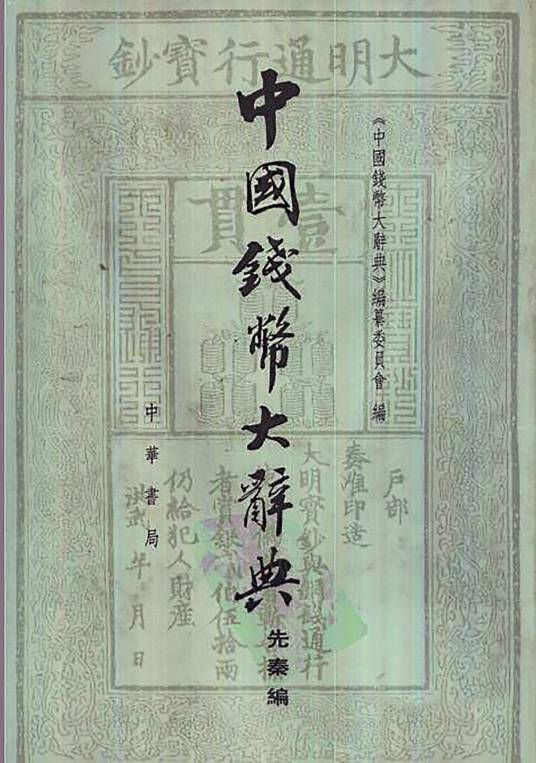 大明通行寶鈔
《中國錢幣大辭典》編纂委員會 編
中國錢幣大辭典
先秦編
中華書局
壹貫
戶部
奏准印造
大明寶鈔與銅錢通行
者賞銀貳佰伍拾兩
仍給犯人財產
洪武 年 月 日